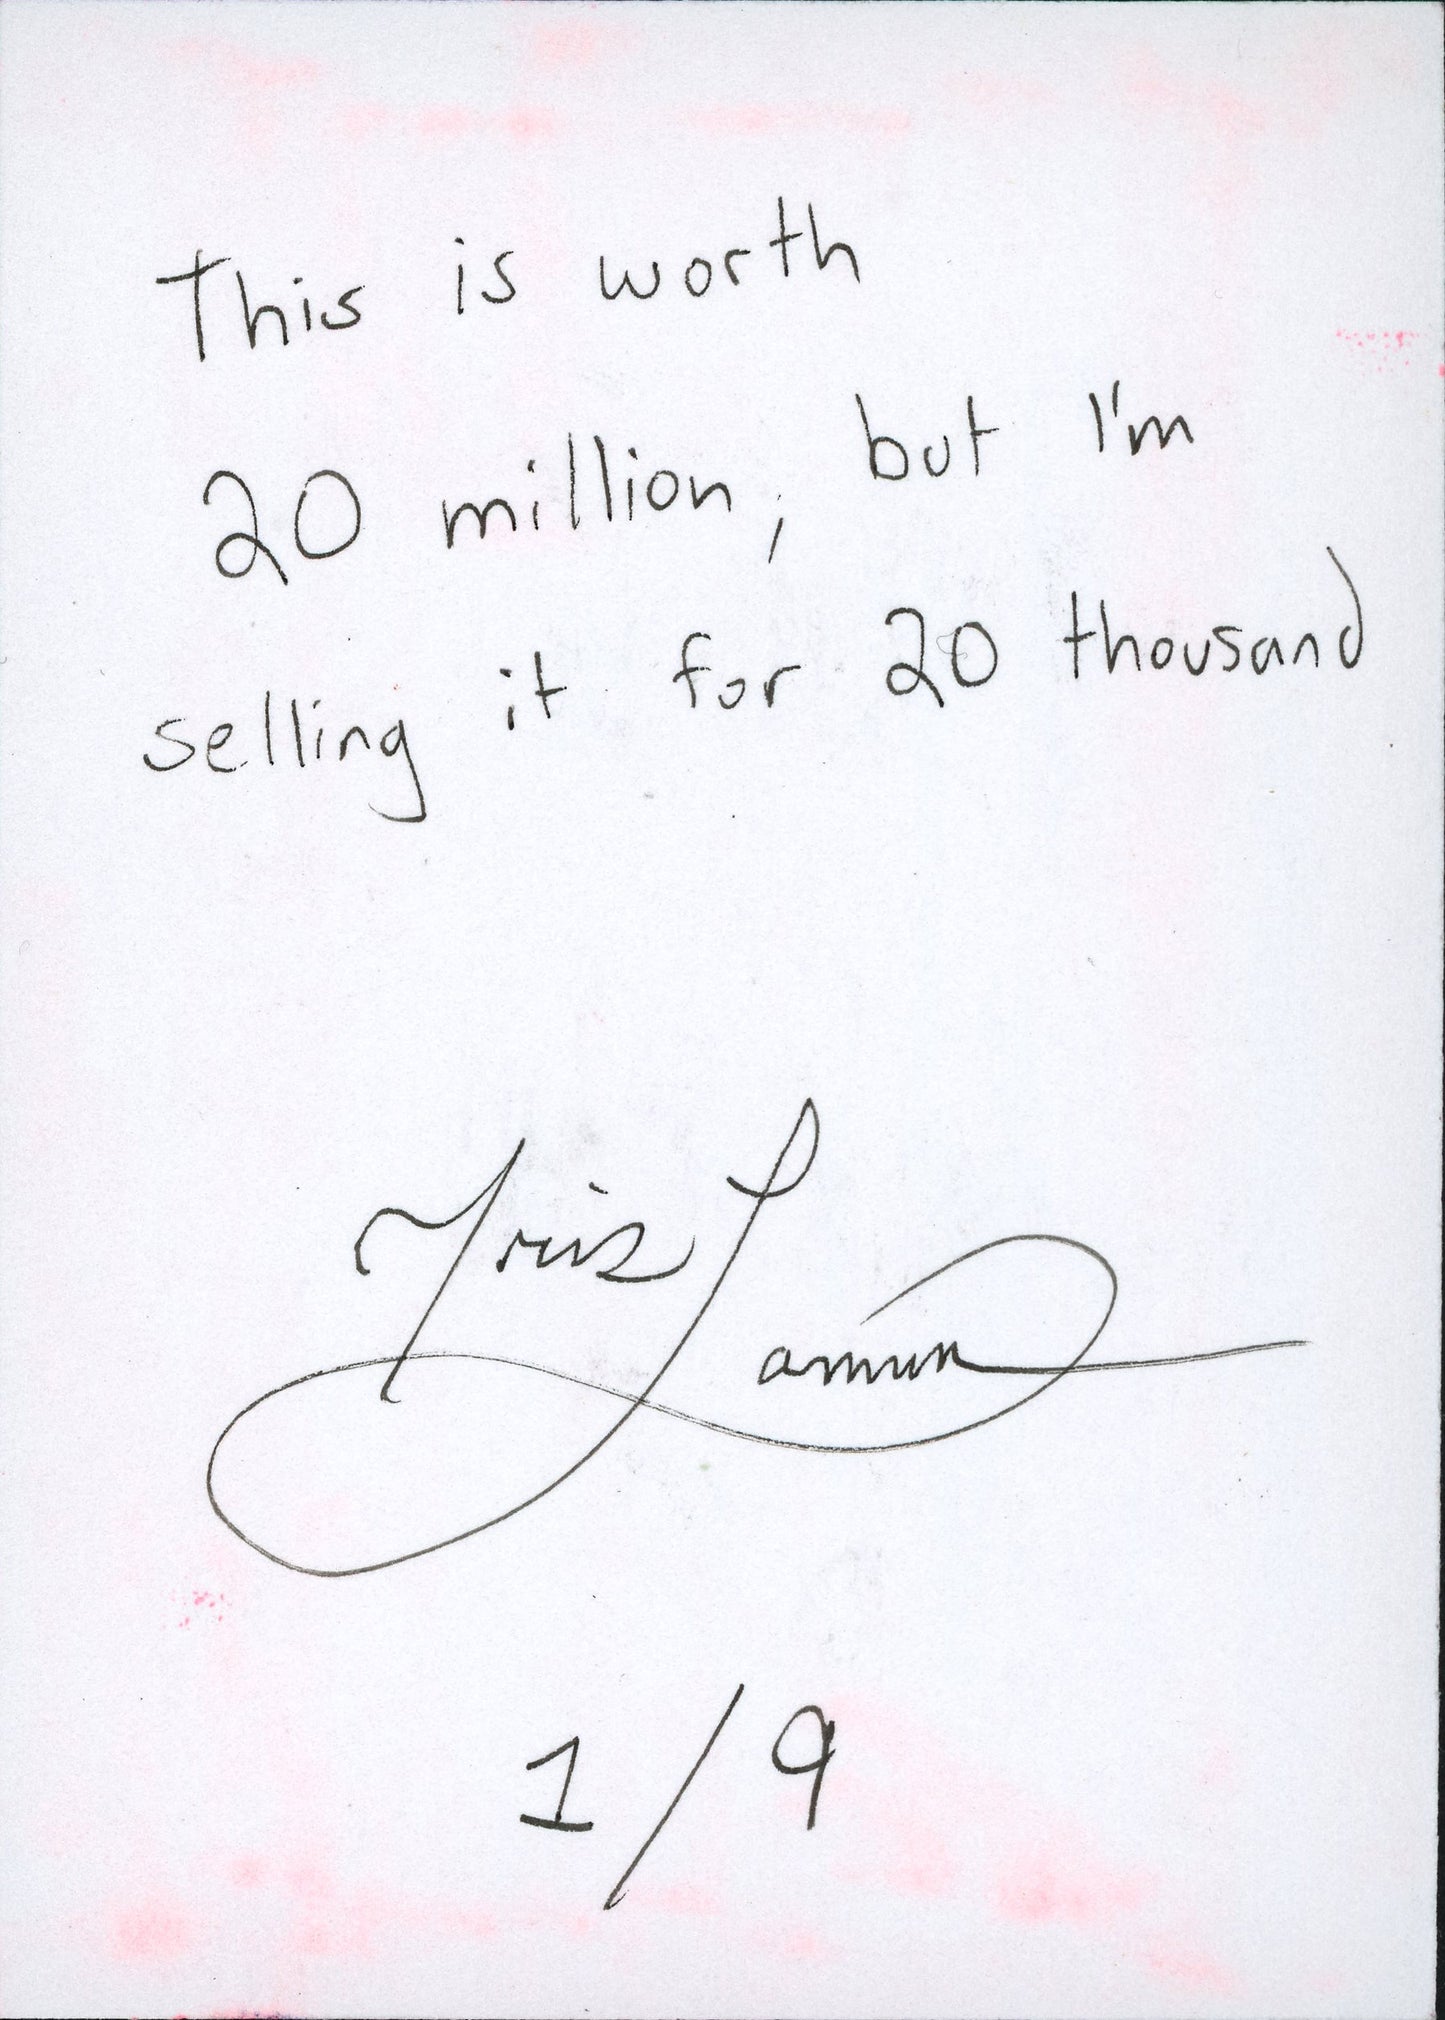 This is worth
20 million, but I'm
selling it for 20 thousand
1/9